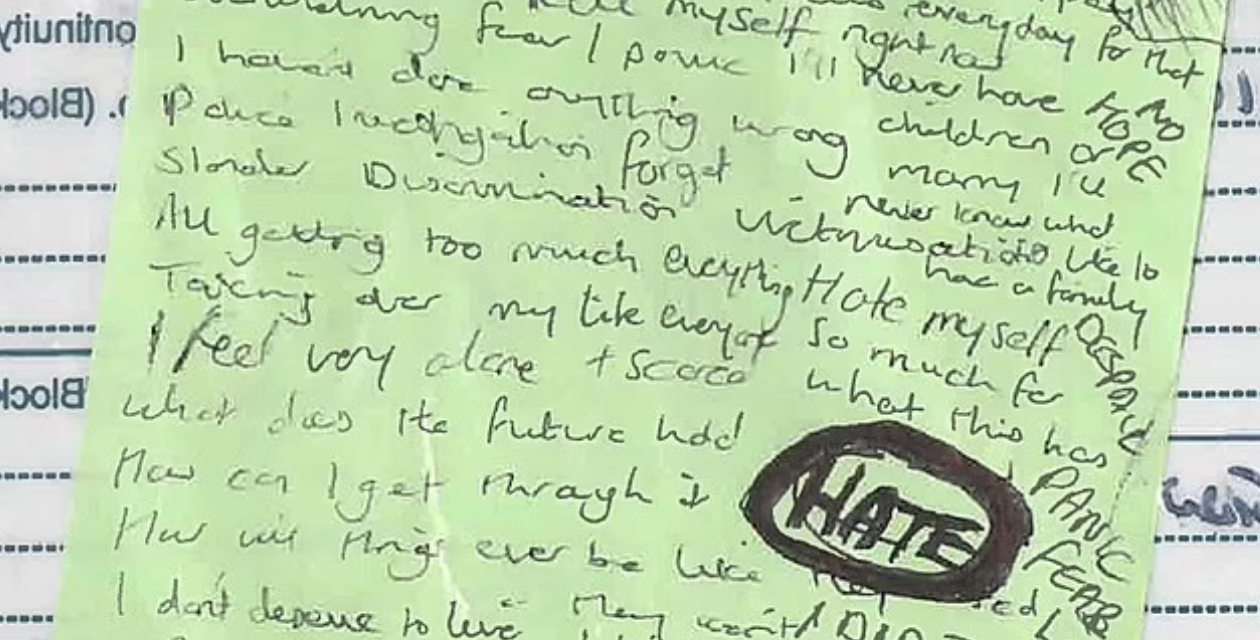 fear I panic I'll never have
I haven't done anything wrong children or
Police Investigation forget marry I'll
never know what
Slander Discrimination Victimisation like to
had a family
All getting too much everything Hate myself
Taking over my life everyone so much for
I feel very alone + scared what this has
what does the future hold
How can I get through it
How will things ever be like
I don't deserve to live. They won't
myself right now
everyday for that
NO
HOPE
DESPAIR
PANIC
FEAR
HATE
ontinuity
o. (Block
Block